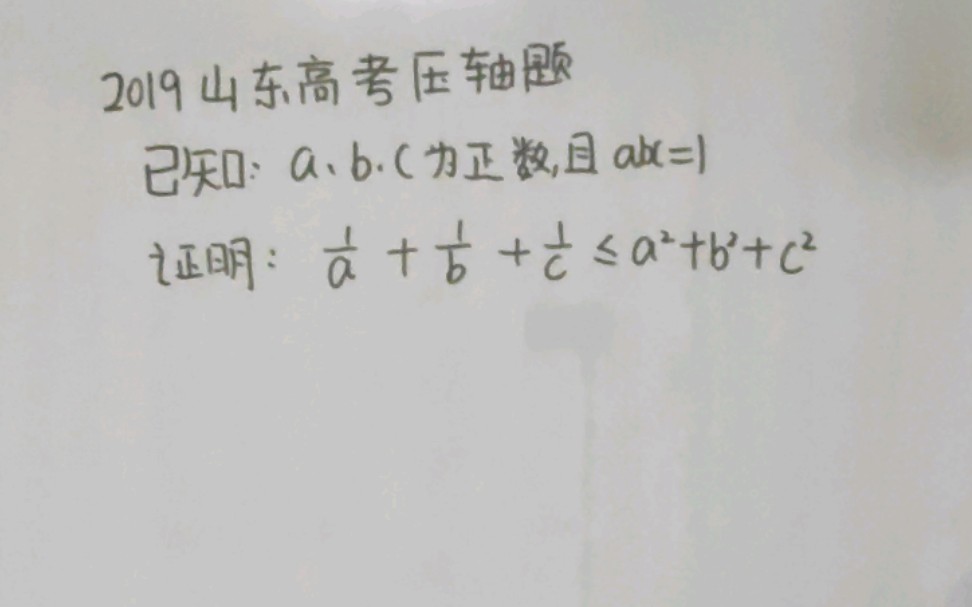 2019山东高考压轴题
已知: a、b、c为正数,且abc=1
证明: 1/a + 1/b + 1/c ≤ a²+b²+c²